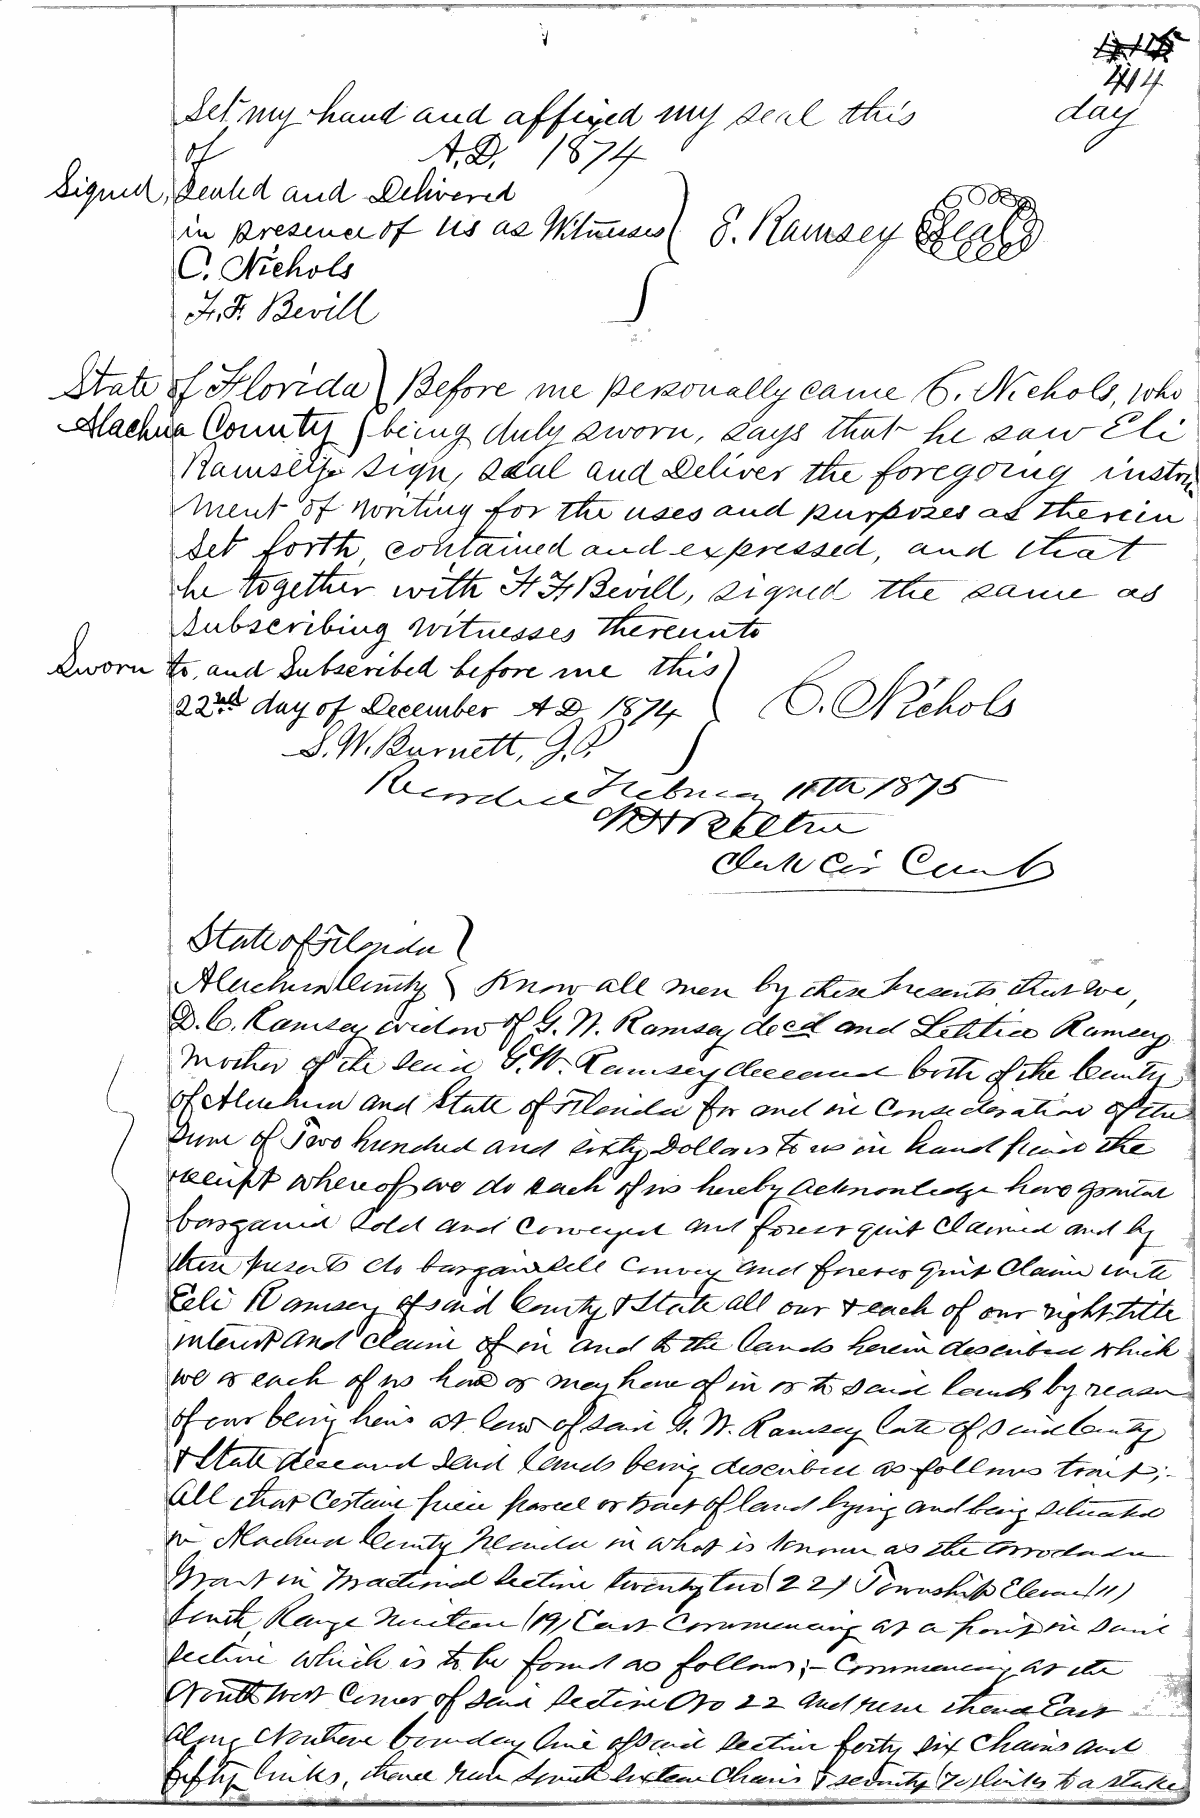 414
Set my hand and affixed my seal this day
of A.D. 1874
Signed, Sealed and Delivered
in presence of us as Witnesses
E. Ramsey Seal
C. Nichols
F. F. Bevill
State of Florida
Alachua County
Before me personally came C. Nichols, who
being duly sworn, says that he saw Eli
Ramsey sign, seal and Deliver the foregoing instru
ment of writing for the uses and purposes as therein
set forth, contained and expressed, and that
he together with F F Bevill, signed the same as
subscribing witnesses thereunto
Sworn to, and Subscribed before me this
22nd day of December A D 1874
C. Nichols
S. W. Burnett, J. P.
Recorded February 1875
Clerk Cir Court
State of Florida
Alachua County Know all men by these presents that we,
D. C. Ramsey widow of G. W. Ramsey decd and Letitia Ramsey
Mother of the said G. W. Ramsey deceased both of the County
of Alachua and State of Florida for and in Consideration of the
Sum of Two hundred and sixty Dollars to us in hand paid the
receipt whereof we do each of us hereby acknowledge have granted
bargained Sold and Conveyed and forever quit Claimed and by
these presents do bargain sell Convey and forever quit Claim unto
Eeli Ramsey of said County & State all our & each of our right title
interest and claim of in and to the lands herein described which
we or each of us have or may have of in or to said lands by reason
of our being heirs at law of said G. W. Ramsey late of said County
& State deceased said lands being described as follows to wit;-
All that Certain piece parcel or tract of land lying and being situated
in Alachua County Florida in what is known as the Arredondo
Grant in Fractional Section twenty two (22) Township Eleven (11)
South, Range Nineteen (19) East Commencing at a point in said
Section which is to be found as follows;- Commencing at the
North West Corner of said Section No 22 and run thence East
along Northern boundary line of said section forty six Chains and
fifty links, thence run South sixteen Chains & seventy (70) links to a stake